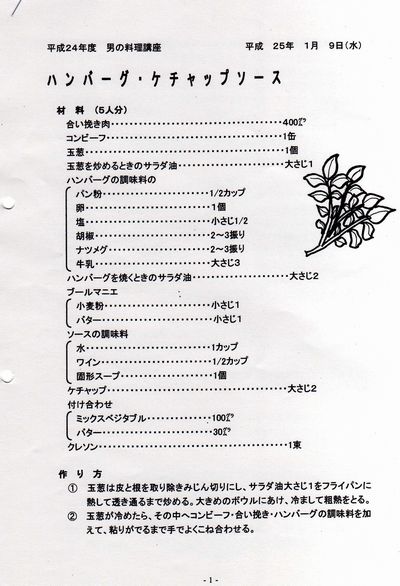 平成24年度　男の料理講座　　　平成　25年　1月　9日(水)
ハンバーグ・ケチャップソース
材　料　(5人分)
合い挽き肉………………………………400㌘
コンビーフ………………………………1缶
玉葱………………………………………1個
玉葱を炒めるときのサラダ油…………大さじ1
ハンバーグの調味料の
パン粉……………………1/2カップ
卵…………………………1個
塩…………………………小さじ1/2
胡椒………………………2～3振り
ナツメグ…………………2～3振り
牛乳………………………大さじ3
ハンバーグを焼くときのサラダ油………………大さじ2
ブールマニエ
小麦粉……………………小さじ1
バター……………………小さじ1
ソースの調味料
水…………………………1カップ
ワイン……………………1/2カップ
固形スープ………………1個
ケチャップ………………………………大さじ2
付け合わせ
ミックスベジタブル……………100㌘
バター……………………………30㌘
クレソン…………………………………1束
作　り　方
①　玉葱は皮と根を取り除きみじん切りにし、サラダ油大さじ1をフライパンに
熱して透き通るまで炒める。大きめのボウルにあけ、冷まして粗熱をとる。
②　玉葱が冷めたら、その中へコンビーフ・合い挽き・ハンバーグの調味料を加
えて、粘りがでるまで手でよくこね合わせる。
- 1 -